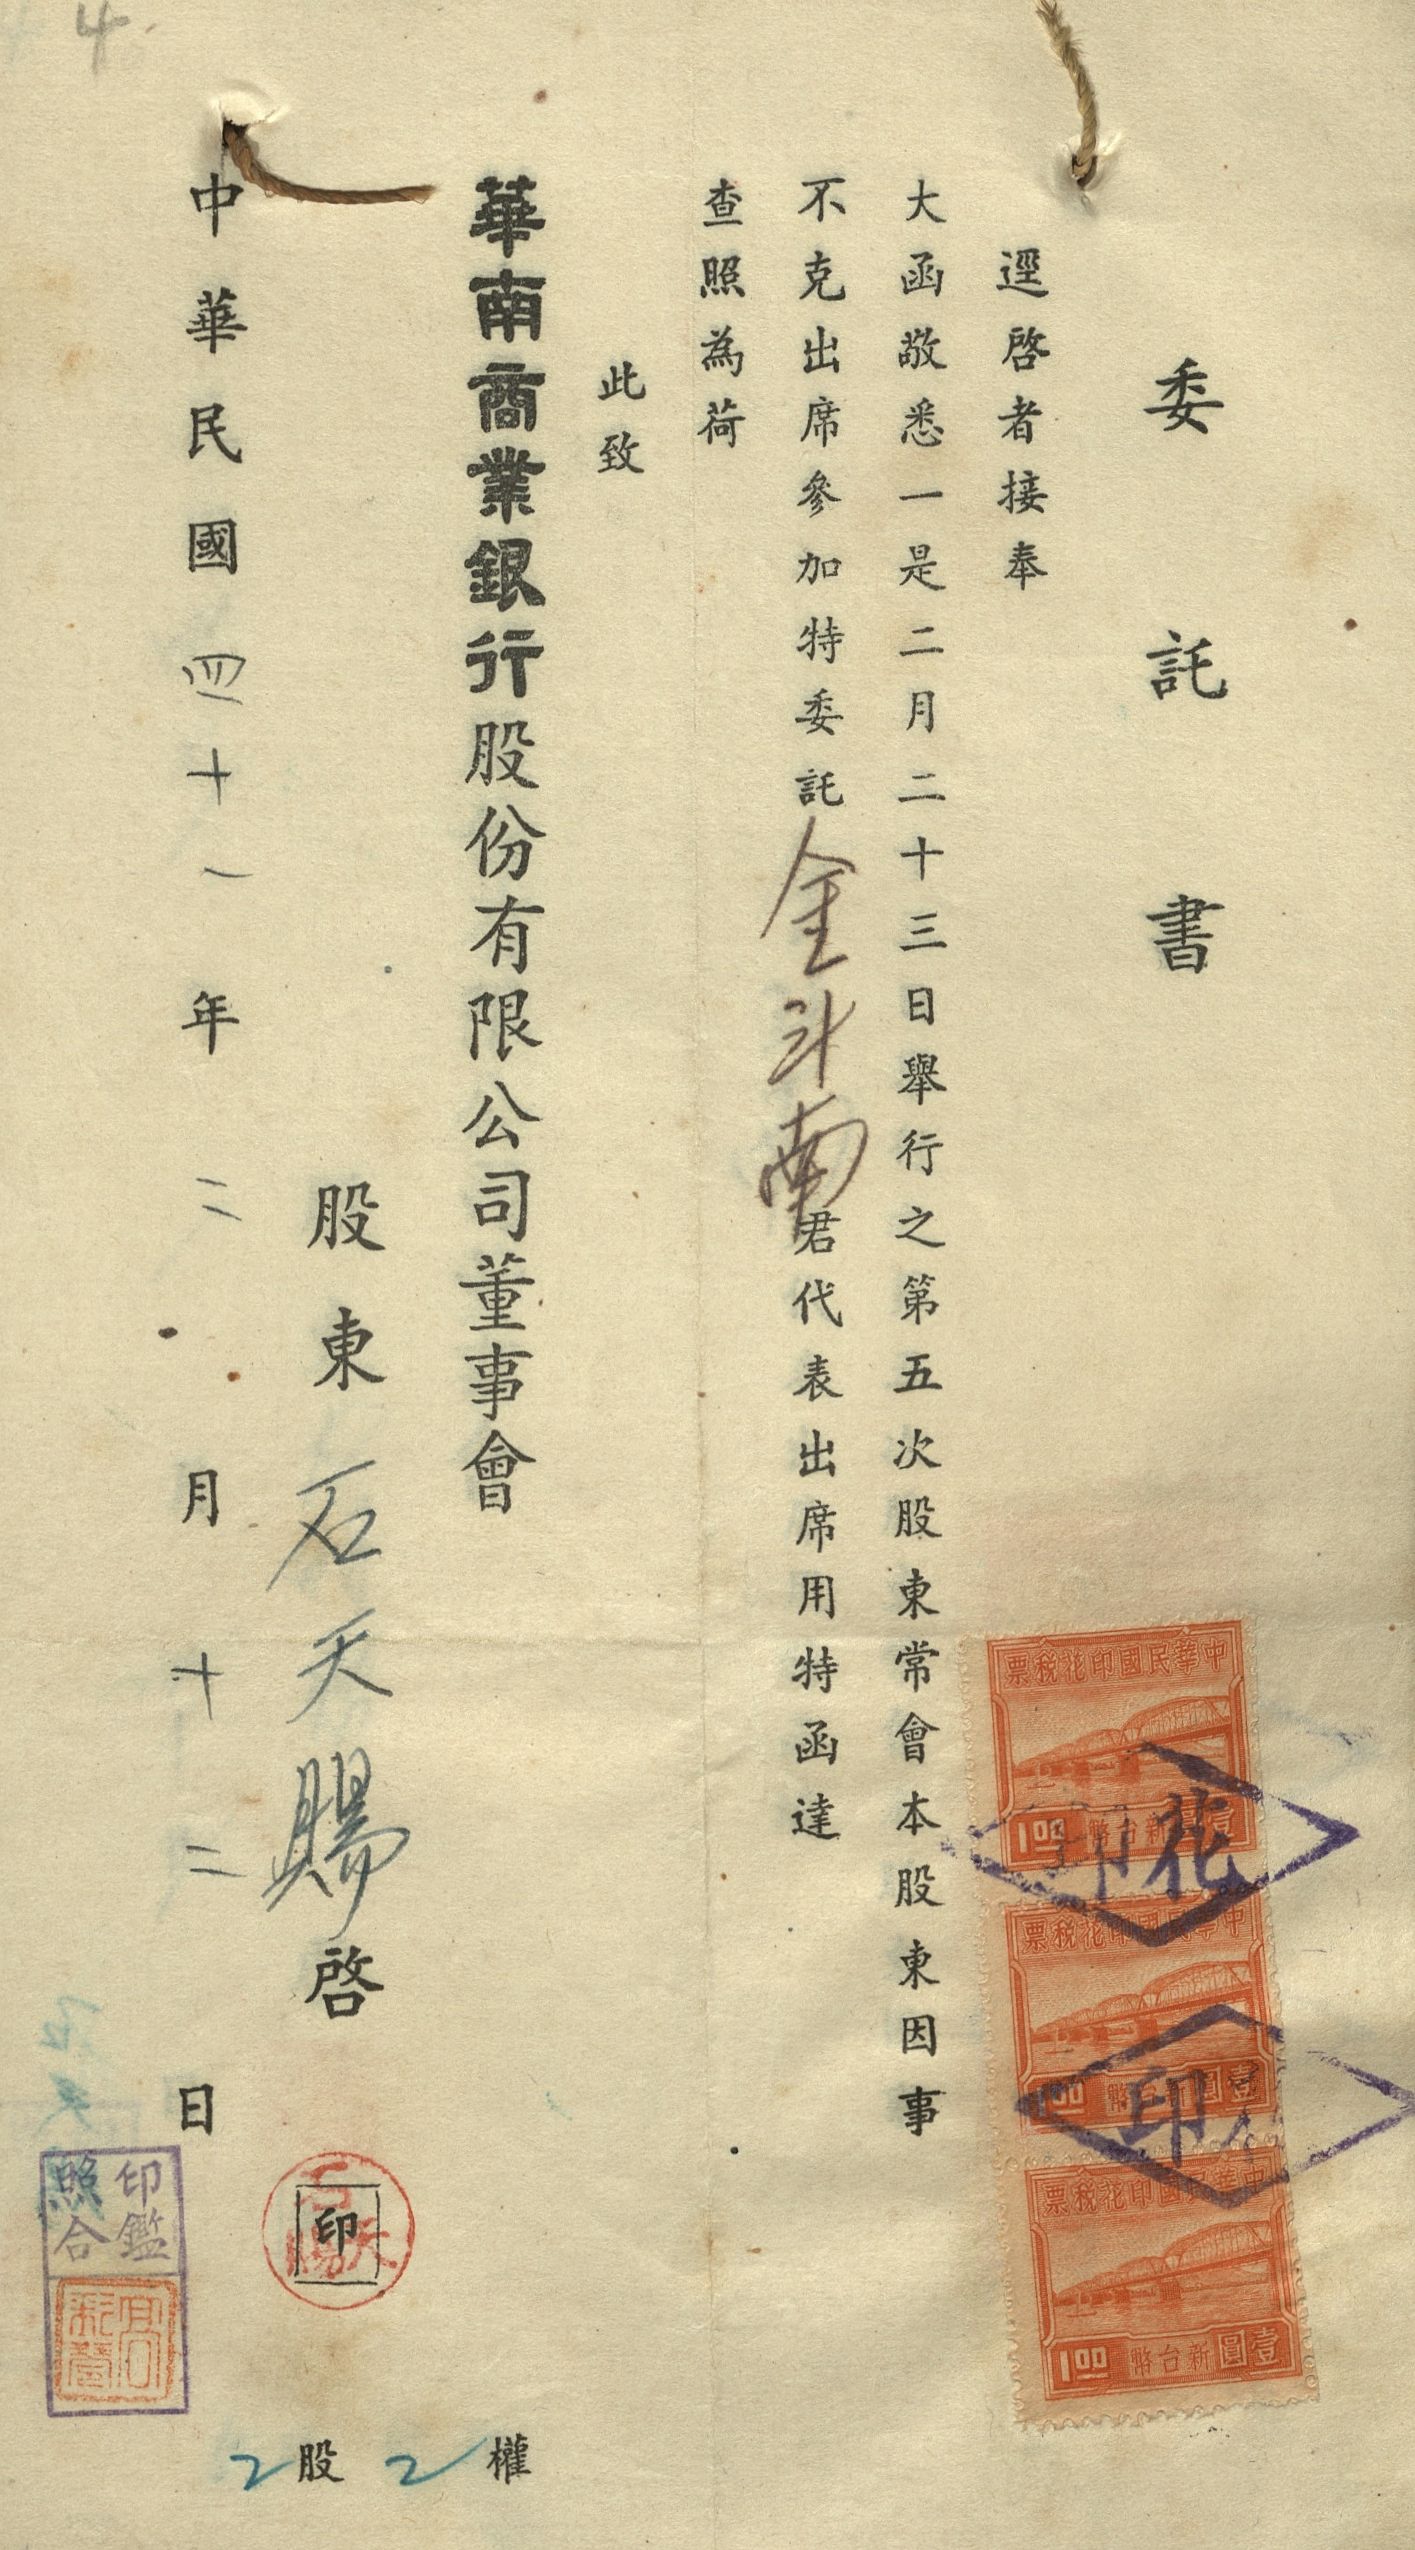 4
委託書
逕啓者接奉
大函敬悉一是二月二十三日舉行之第五次股東常會本股東因事
不克出席參加特委託金斗南君代表出席用特函達
查照為荷
此致
華南商業銀行股份有限公司董事會
股東石天賜啓
印
2股2權
中華民國四十一年二月十二日
印鑑
照合
中華民國印花稅票
1.00 新台幣壹圓
中華民國印花稅票
1.00 新台幣壹圓
中華民國印花稅票
1.00 新台幣壹圓
印花
印